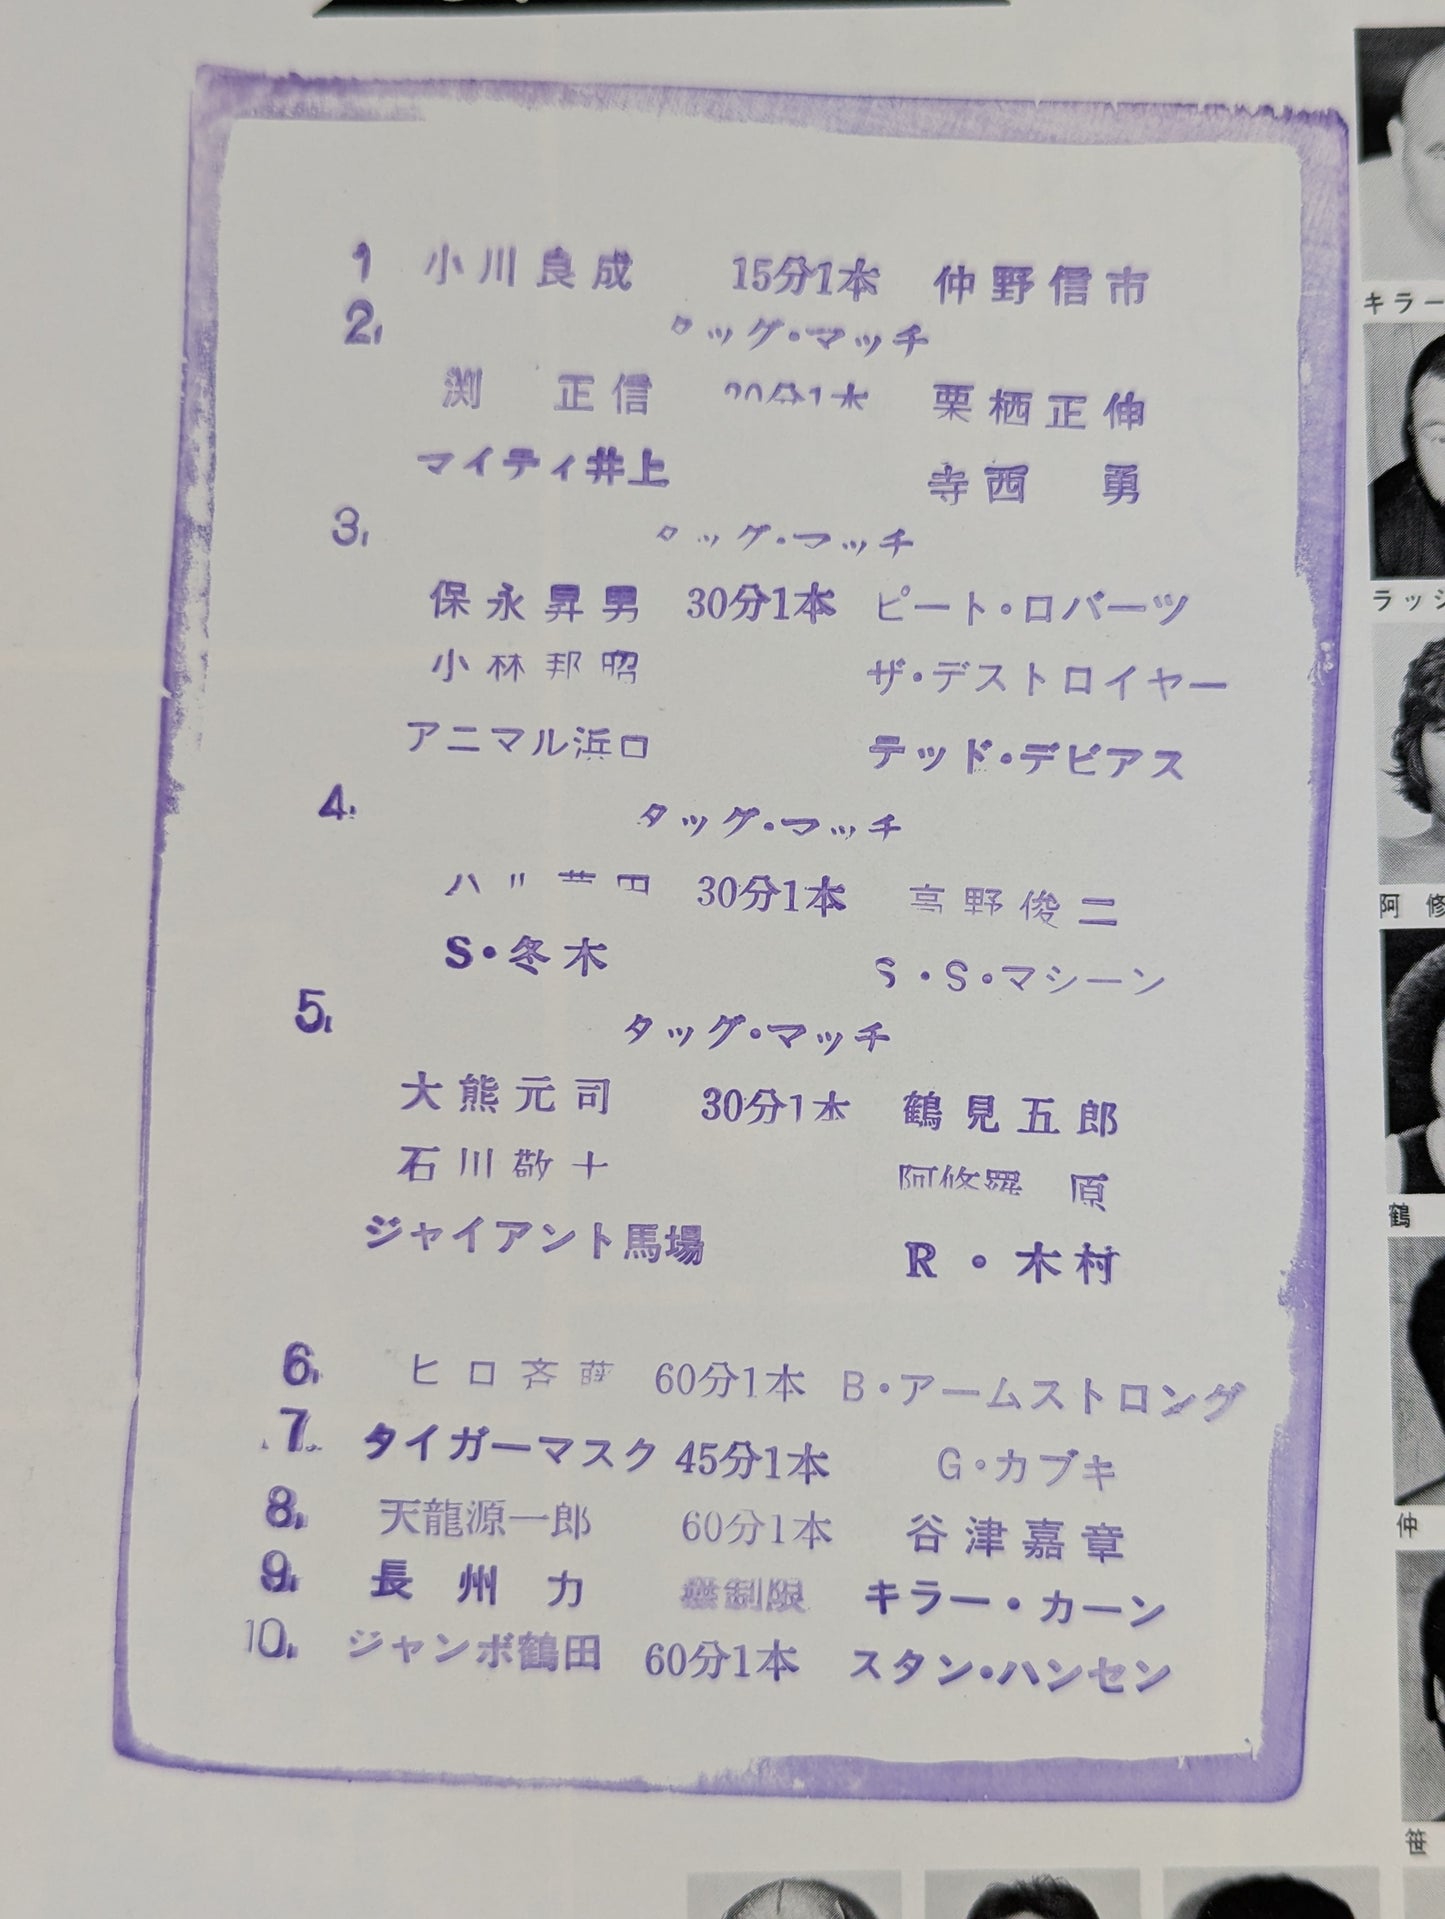 1 小川良成 15分1本 仲野信市
2. タッグ・マッチ
渕 正信 20分1本 栗栖正伸
マイティ井上 寺西 勇
3. タッグ・マッチ
保永昇男 30分1本 ピート・ロバーツ
小林邦昭 ザ・デストロイヤー
アニマル浜口 テッド・デビアス
4. タッグ・マッチ
30分1本 高野俊二
S・冬木 S・S・マシーン
5. タッグ・マッチ
大熊元司 30分1本 鶴見五郎
石川敬士 阿修羅 原
ジャイアント馬場 R・木村
6. ヒロ斉藤 60分1本 B・アームストロング
7. タイガーマスク 45分1本 G・カブキ
8. 天龍源一郎 60分1本 谷津嘉章
9. 長州力 無制限 キラー・カーン
10. ジャンボ鶴田 60分1本 スタン・ハンセン
キラー
ラッシ
阿修
鶴
仲
笹